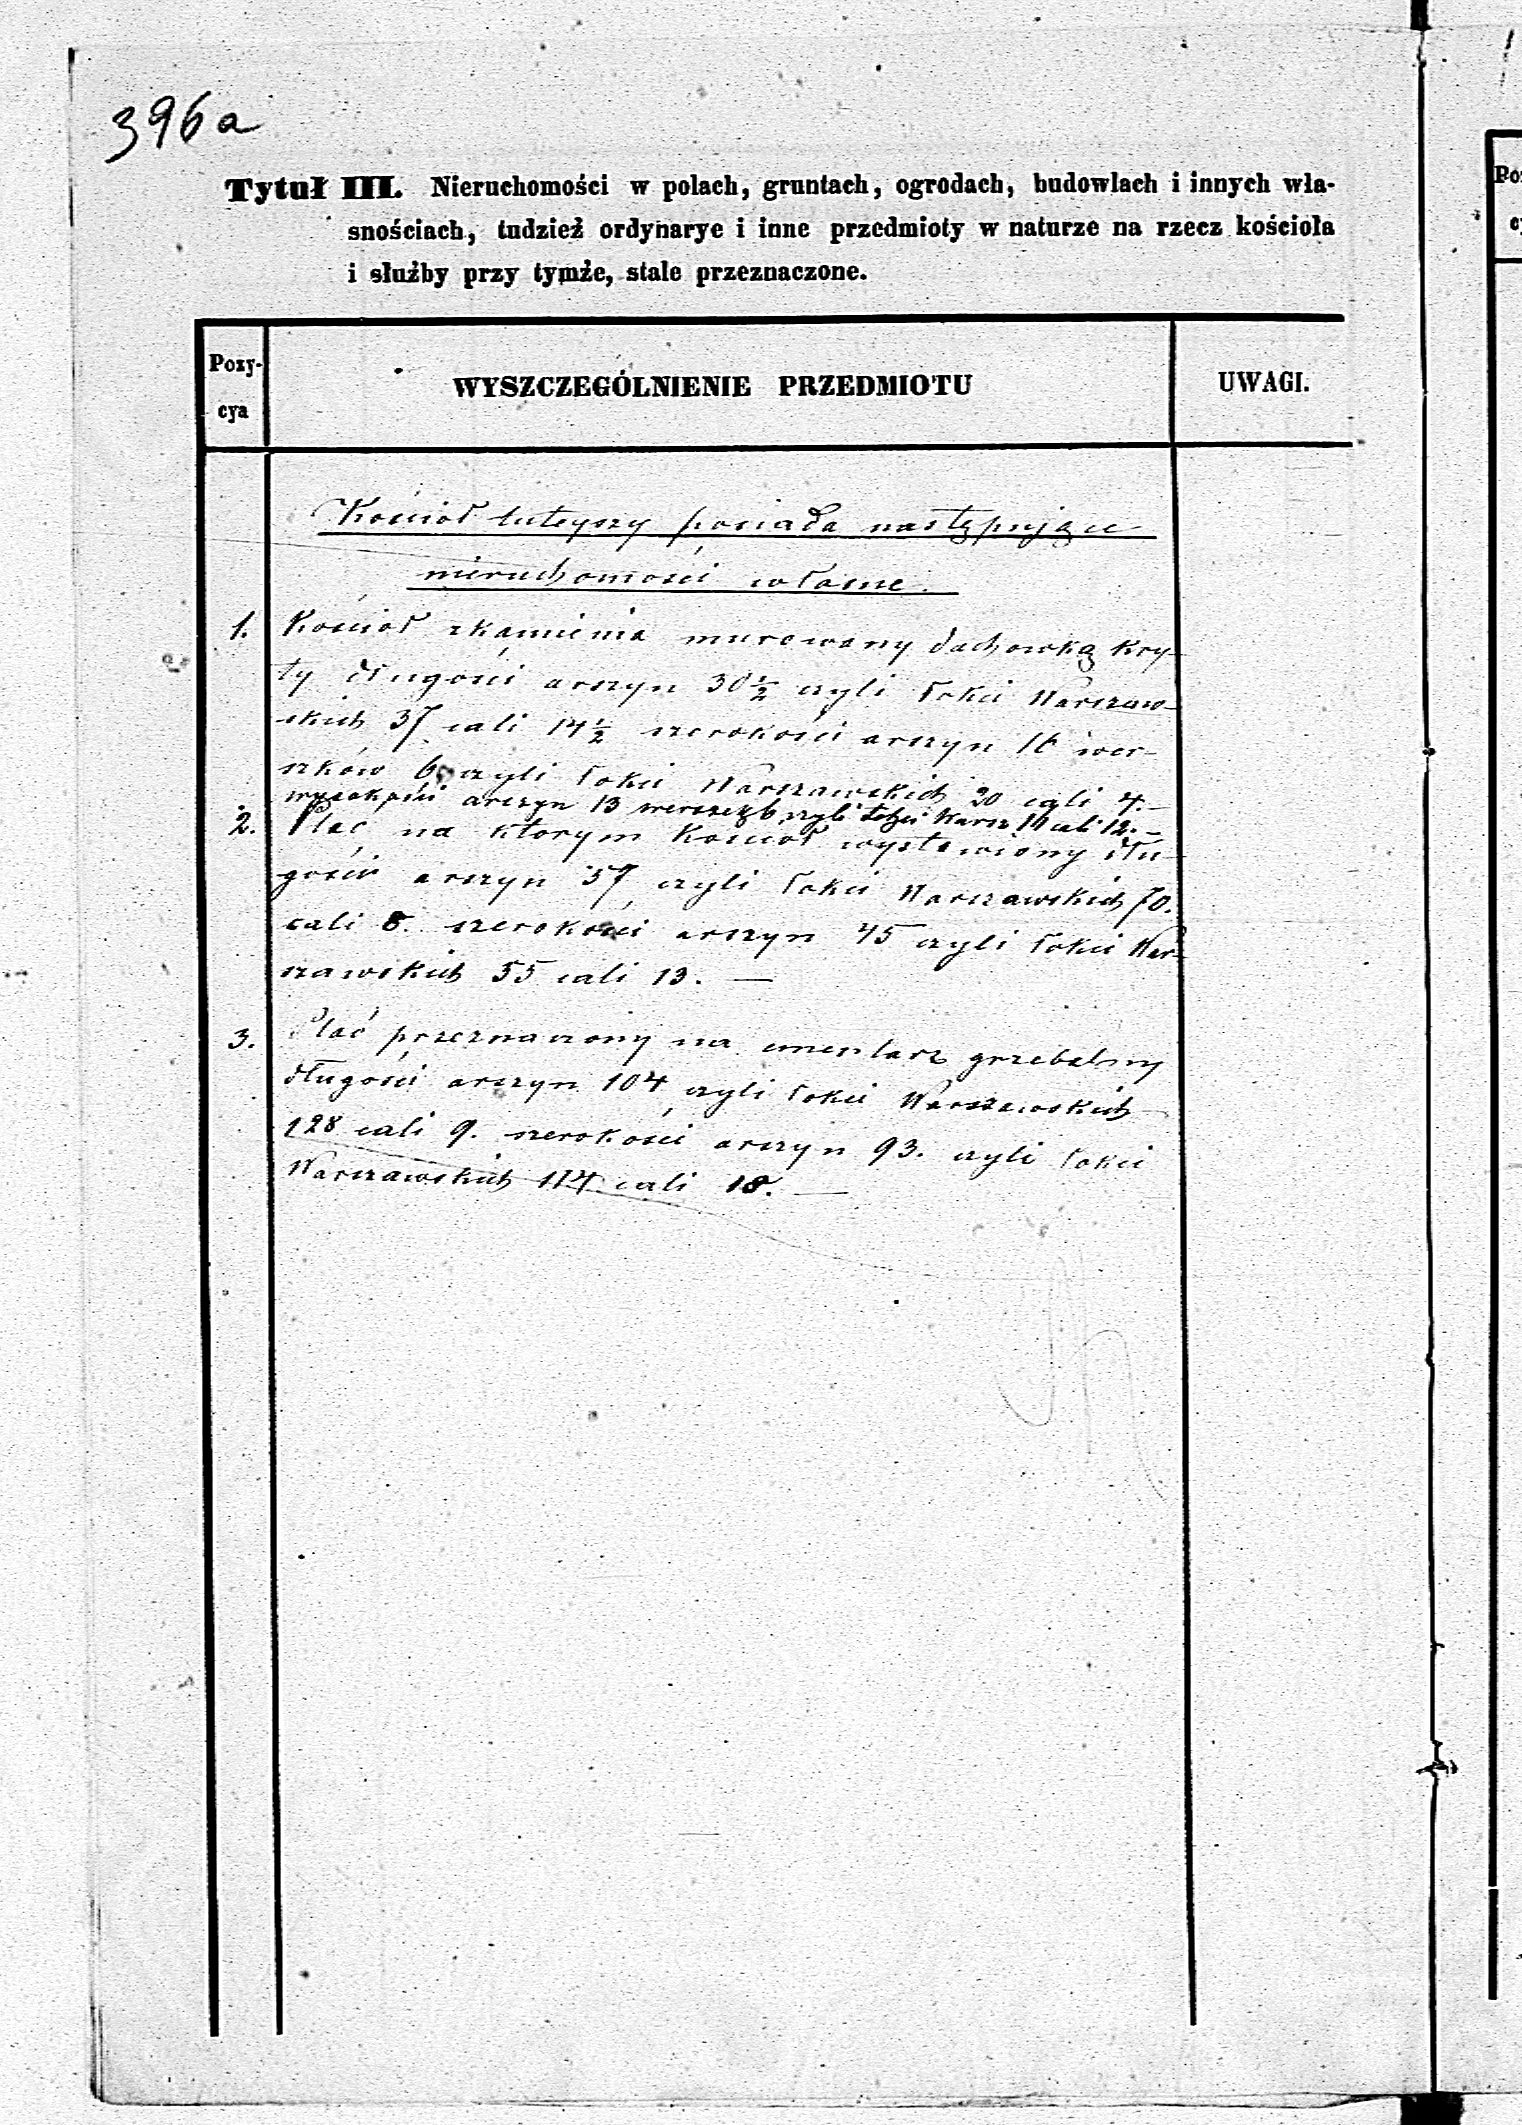 396a
Tytuł III. Nieruchomości w polach, gruntach, ogrodach, budowlach i innych wła-
snościach, tudzież ordynarye i inne przedmioty w naturze na rzecz kościoła
i służby przy tymże, stale przeznaczone.
Pozy-
cya
WYSZCZEGÓLNIENIE PRZEDMIOTU
UWAGI.
Kościoł tuteyszy posiada następujące
nieruchomości własne.
1. Kościoł z kamienia murowany dachowką kry-
ty długości arszyn 30½ czyli łokci Warszaw-
skich 37 cali 14½ szerokości arszyn 16 wer-
szków 6, czyli łokci Warszawskich 20 cali 4.—
wysokości arszyn 13 werszek 6, czyli łokci Warsz cali 12.—
2. Plac na ktorym Kościoł wystawiony dłu-
gości arszyn 57 czyli łokci Warszawskich 70.
cali 8. szerokości arszyn 45 czyli łokci War-
szawskich 55 cali 13. —
3. Plac przeznaczony na cmentarz grzebalny
długości arszyn 104 czyli łokci Warszawskich
128 cali 9. szerokości arszyn 93. czyli łokci
Warszawskich 114 cali 18. —
Po
c